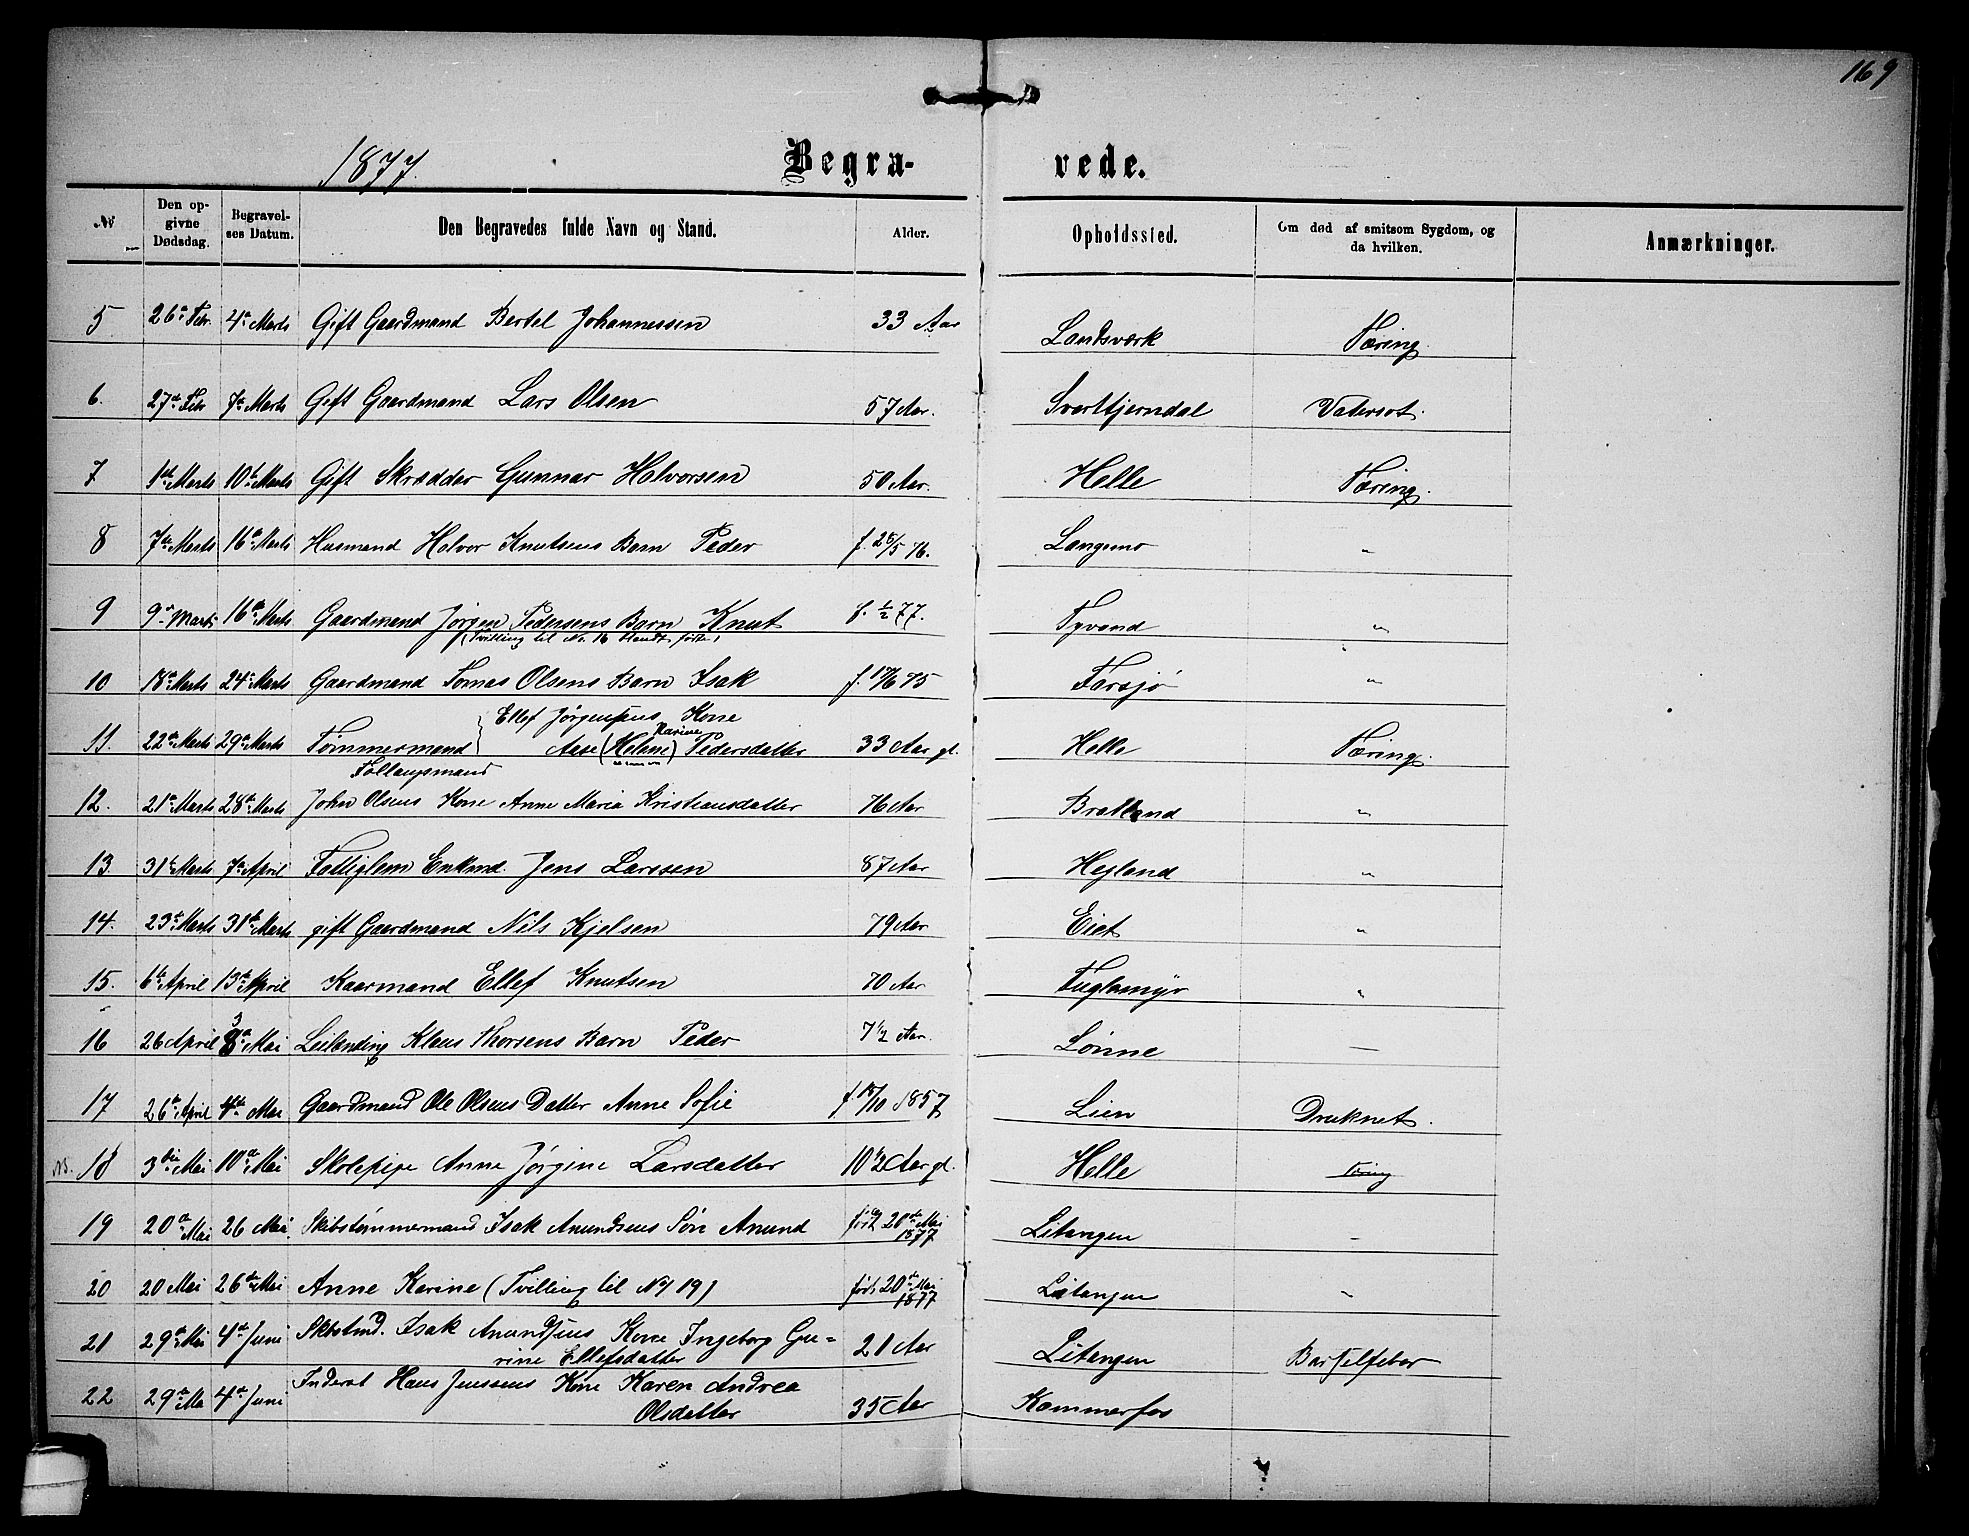 169
1877.
Begra- vede.
№ Den opgivne Dødsdag. Begravelses Datum. Den Begravedes fulde Navn og Stand. Alder. Opholdssted. Om død af smitsom Sygdom, og da hvilken. Anmærkninger.
5 26de Febr. 4de Marts Gift Gaardmand Bertel Johannessen 33 Aar Landsværk Tæring.
6. 27de Feb 7de Marts Gift Gaardmand Lars Olsen 57 Aar. Svarttjerndal Vatersot.
7 1ste Marts 10de Marts Gift Skrædder Gunnar Halvorsen 50 Aar. Helle Tæring.
8 7de Marts 16de Marts Husmand Halvor Knutsens Barn Peder f. 28/5 76. Langemo "
9 9de Marts 16de Marts Gaardmand Jørgen Pedersens Barn Knut f. 1/2 77. Tyvand "
(Tvilling til No. 16 blandt fødte)
10 18de Marts 24de Marts Gaardmand Tomas Olsens Barn Isak f. 17/6 75 Farsjø "
Ellef Jørgensens Kone
11. 22de Marts 29de Marts Tømmermand Aase (Helene) Karine Pedersdatter 33 Aar gl. Helle Tæring.
Follaugsmand
12. 21de Marts 28de Marts John Olsens Kone Anne Maria Kristiansdatter 76 Aar Bratland "
13. 31te Marts 7de April Fattiglem Enkmd. Jens Larssen 87 Aar Hejland "
14. 23de Marts 31te Marts gift Gaardmand Nils Kjelsen 79 Aar Eiet "
15. 6te April 13de April Kaarmand Ellef Knutsen 70 Aar Fuglemyr "
16 26 April 3 Mai Leilending Klaus Thorsens Barn Peder 7 1/2 Aar. Lønne —
17 26de April 4de Mai Gaardmand Ole Olsens Datter Anne Sofie f. 15/10 1857 Lien Druknet.
NB. 18 3die Mai 10de Mai Skolepige Anne Jørgine Larsdatter 10 1/2 Aar gl. Helle Tæring
19 20de Mai 26 Mai. Skibstømmermand Isak Anundsens Søn Anund født 20de Mai 1877 Litangen -
20 20 Mai 26de Mai Anne Karine (Tvilling til № 19) født 20de Mai 1877 Litangen "
21 29de Mai 4de Juni Skbstmd. Isak Anundsens Kone Ingeborg Gu=
rine Ellefsdatter 21 Aar Litangen Barselfeber
22 29de Mai 4de Juni Inderst Hans Jenssens Kone Karen Andrea
Olsdatter 35 Aar Kammerfos